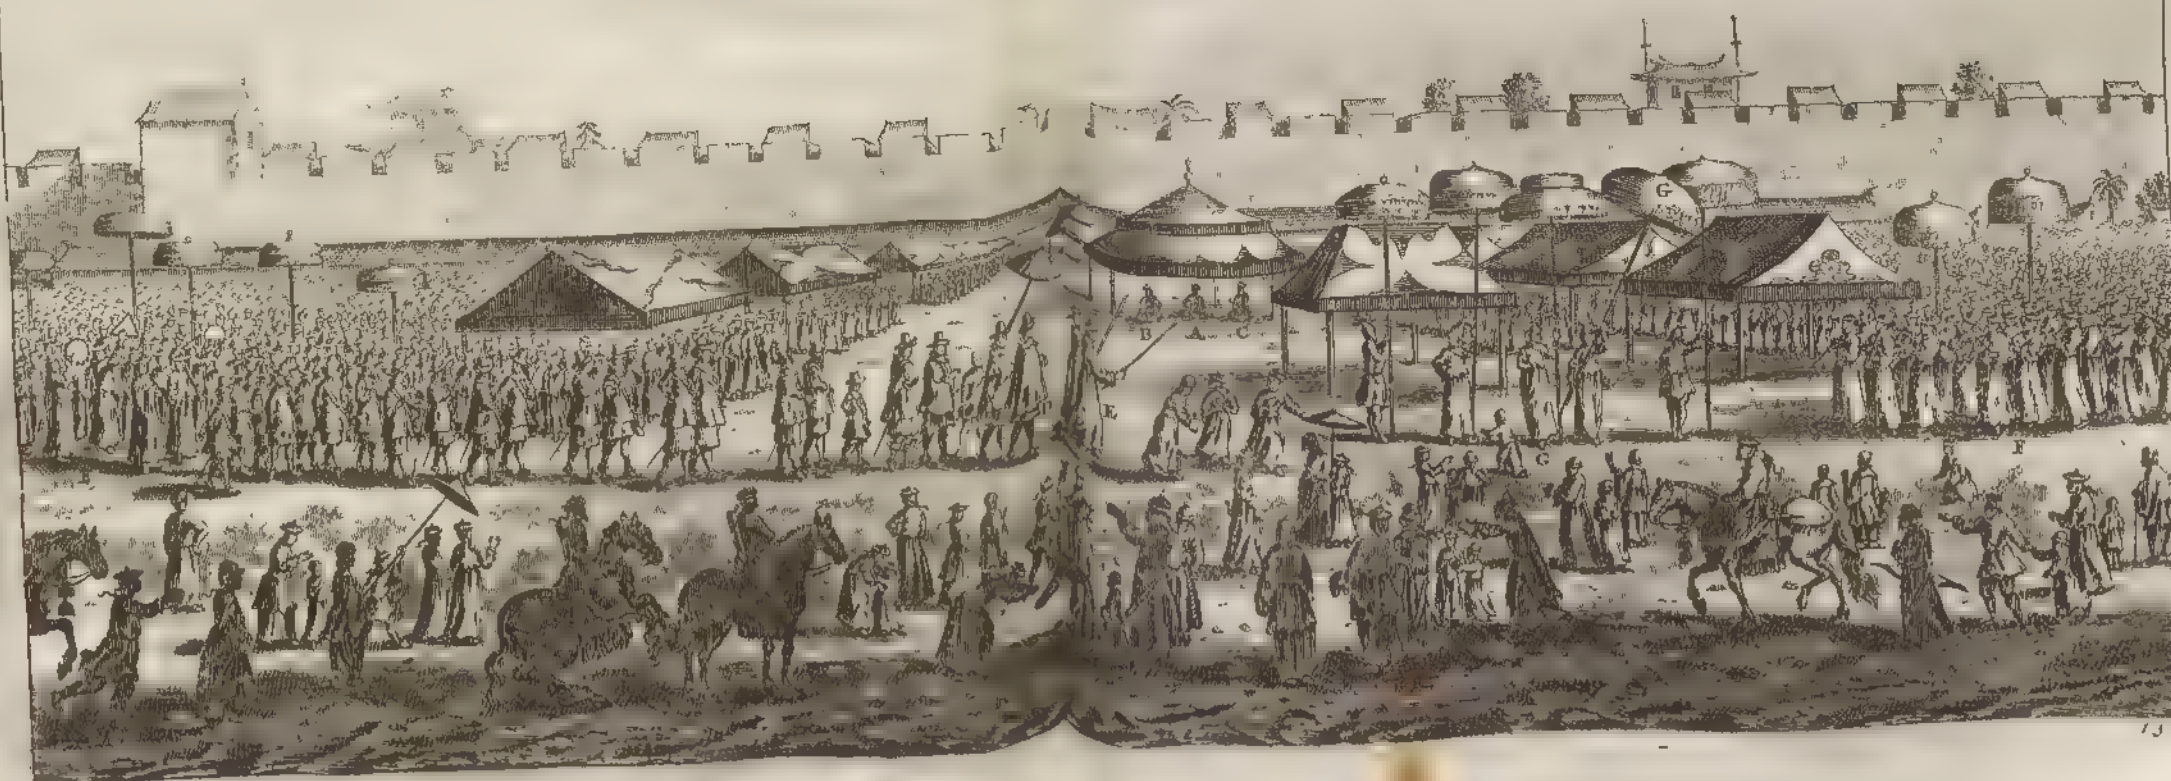 G
B A C
E
G
F
13